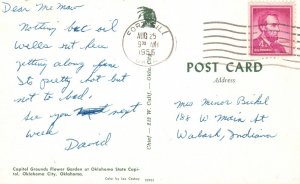 Dear Me Maw
Nothing but oil
wells out here
getting along fine
Its pretty hot but
not to bad.
See you next
week
David
Capitol Grounds Flower Garden at Oklahoma State Capitol, Oklahoma City, Oklahoma.
AUG 25
1956
4¢
POST CARD
Address
Mrs Minor
188 W Main St
Wabash, Indiana